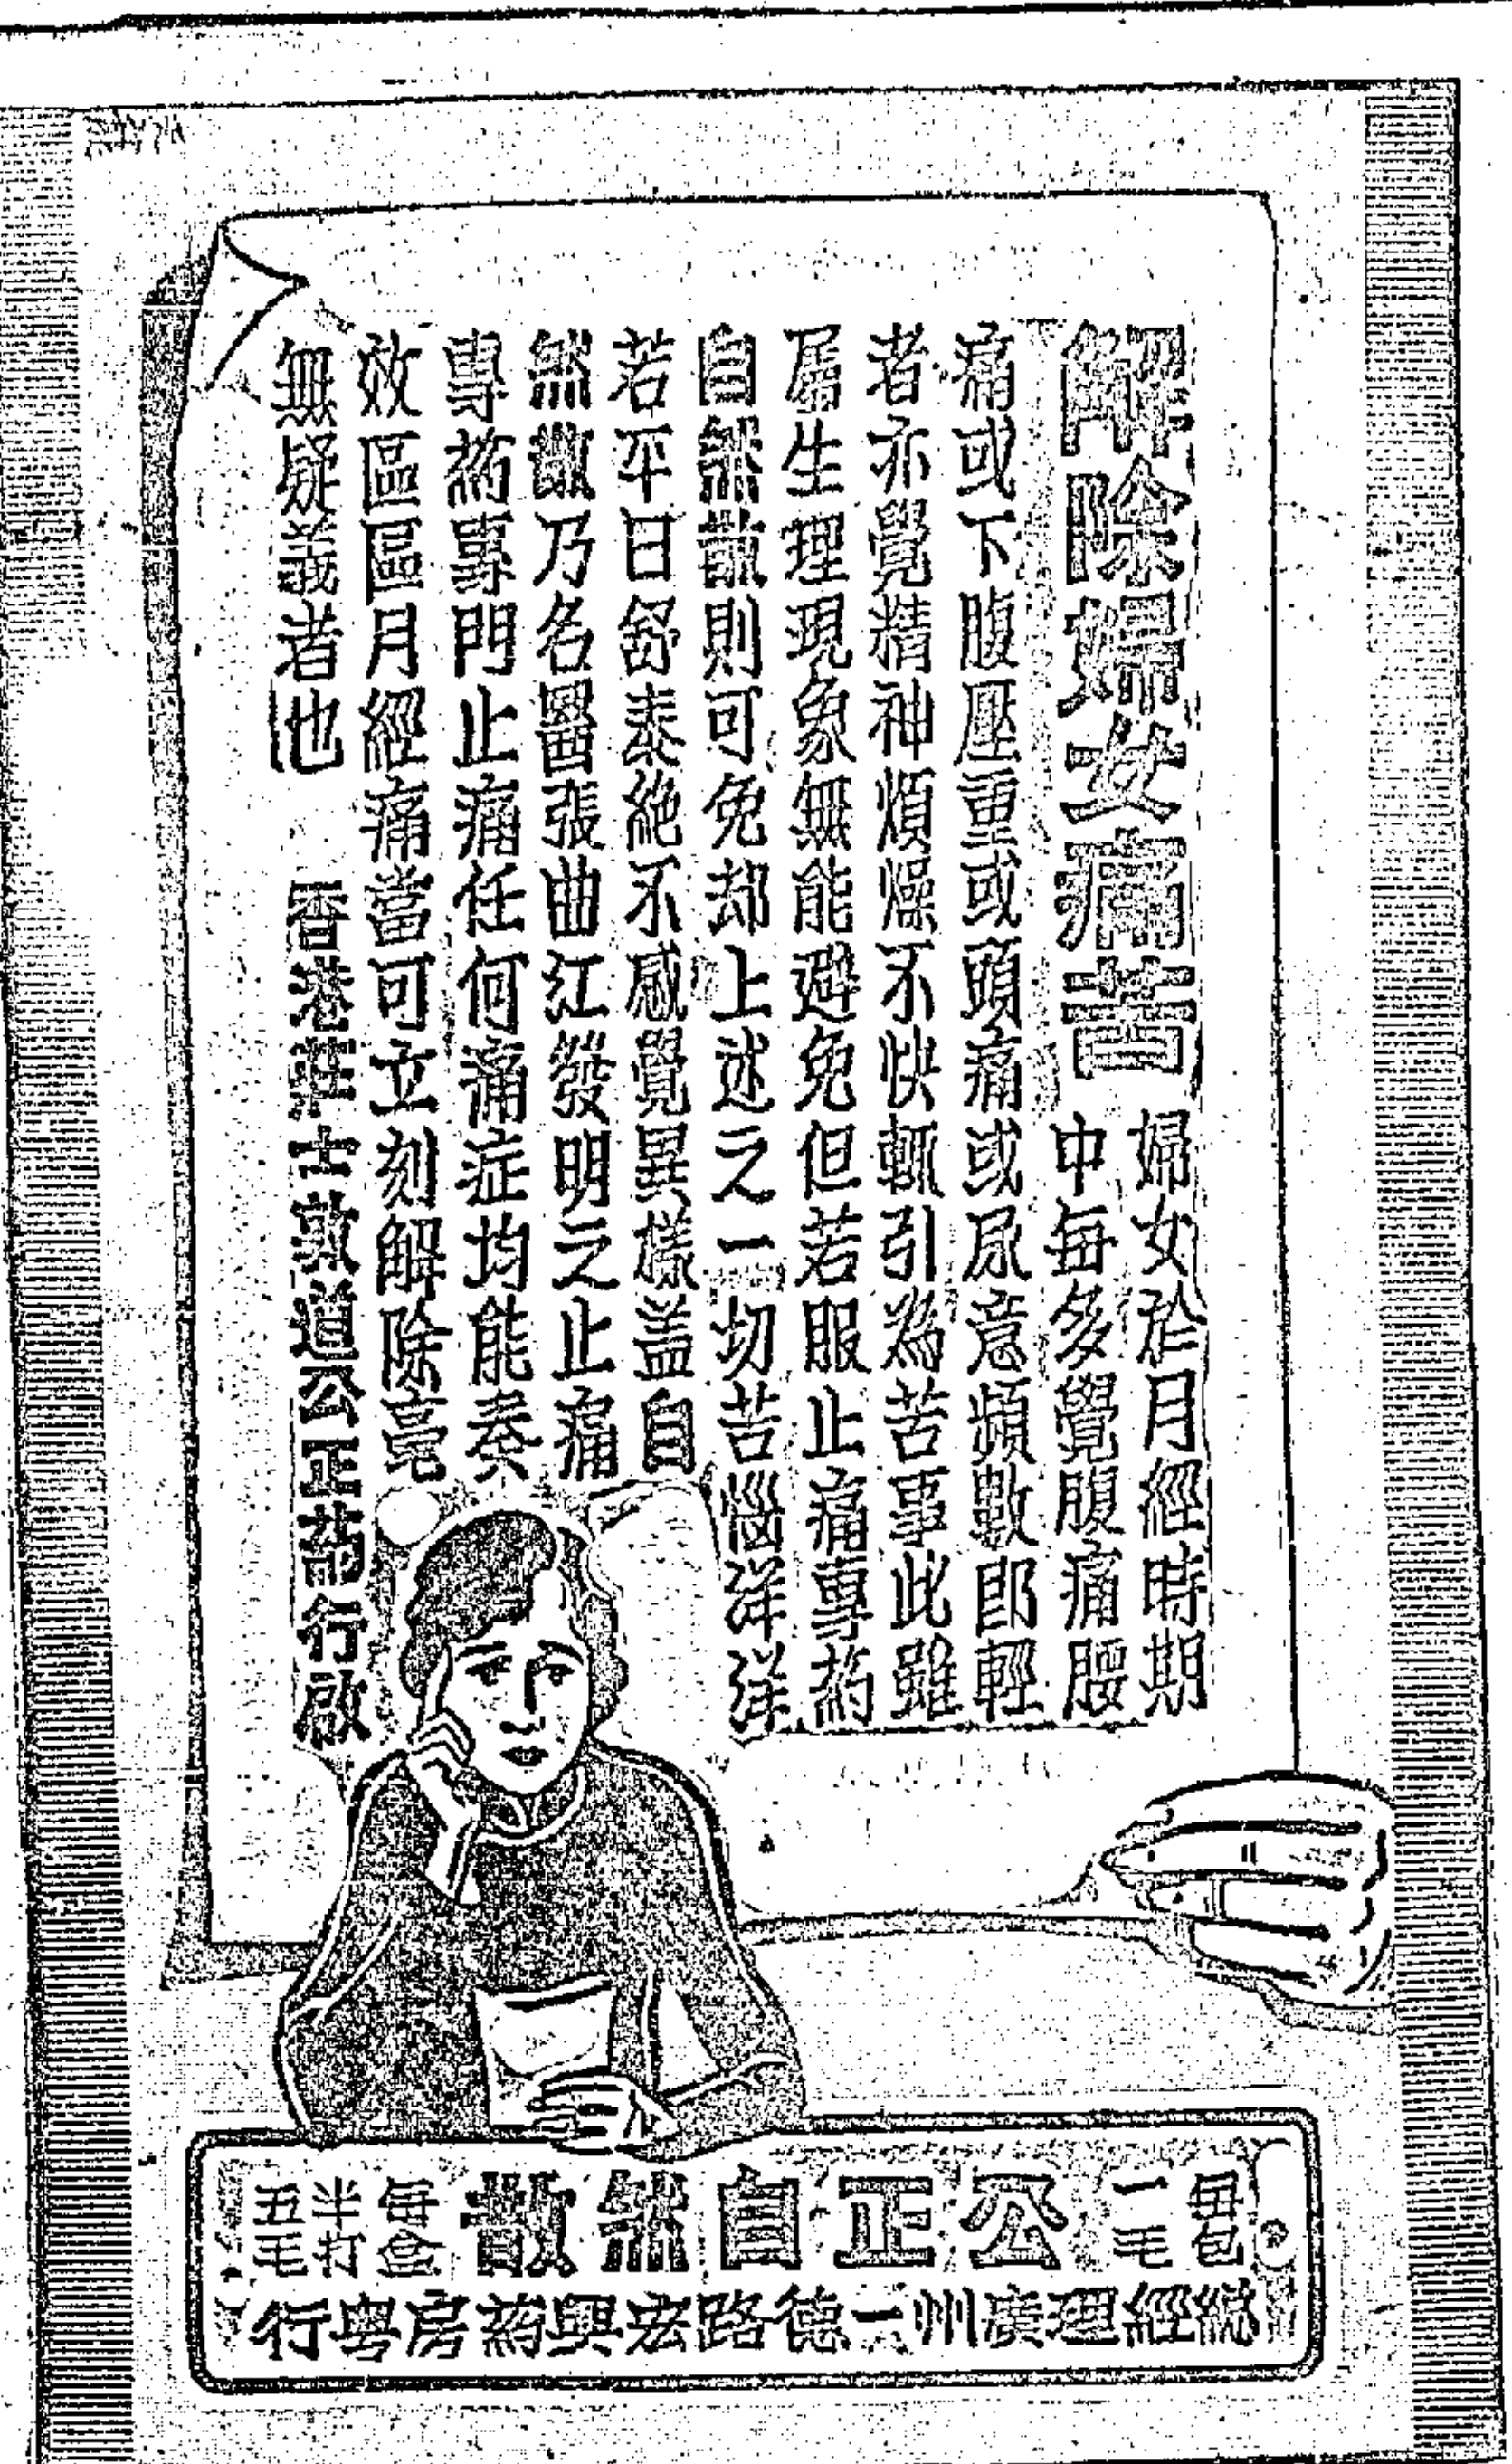 解除婦女痛苦
婦女於月經時期
中每多覺腹痛腰
痛或下腹壓重或頭痛或尿意頻數即輕
者亦覺精神煩燥不快輒引為苦事此雖
屬生理現象無能避免但若服止痛專葯
自然散則可免却上述之一切苦惱洋洋
若平日舒泰絶不感覺異樣盖自
然散乃名醫張曲江發明之止痛
專葯專門止痛任何痛症均能奏
效區區月經痛當可立刻解除毫
無疑義者也
香港莊士敦道公正葯行啟
每包
一毛
公正自然散
每盒
半打
五毛
總經理廣州一德路宏興葯房粤行